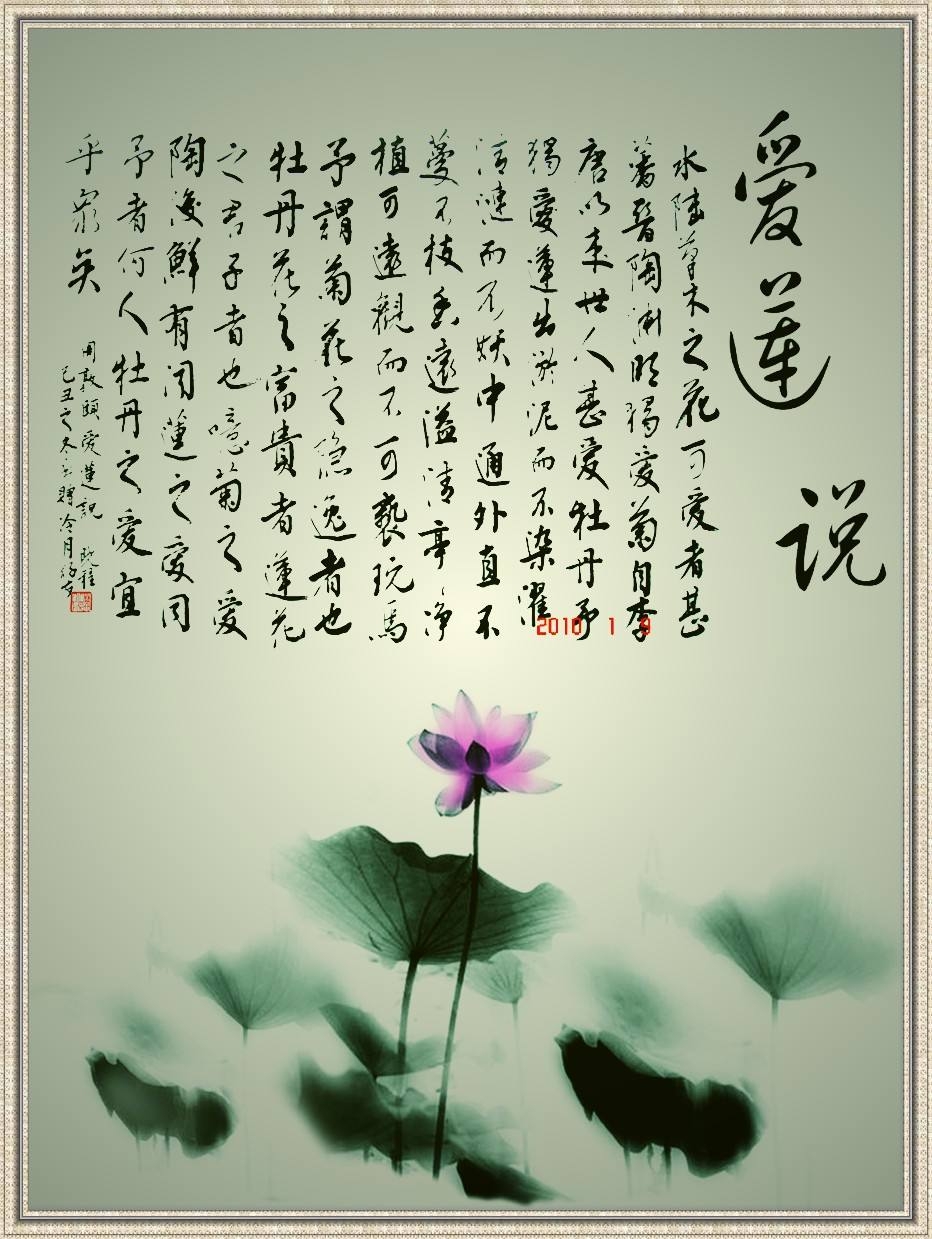 愛蓮说
水陸草木之花可愛者甚
蕃晉陶渊明獨愛菊自李
唐以来世人甚愛牡丹予
獨愛蓮出淤泥而不染濯
清漣而不妖中通外直不
蔓不枝香遠溢清亭净
植可遠觀而不可褻玩焉
予謂菊花之隐逸者也
牡丹花之富貴者蓮花
之君子者也噫菊之愛
陶後鮮有闻蓮之愛同
予者何人牡丹之愛宜
乎眾矣
周敦頤愛蓮説
己丑之冬贈冷月
2010 1 9